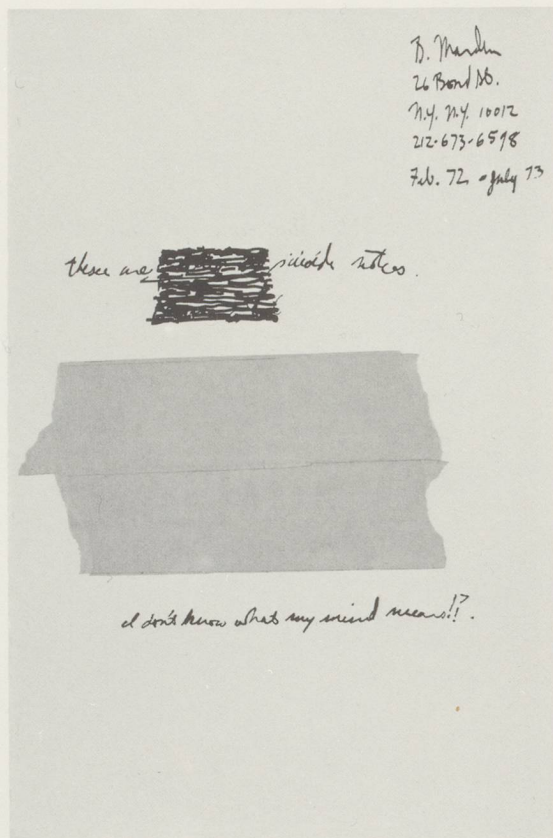 B. Marden
26 Bond St.
N.Y. N.Y. 10012
212-673-6598
Feb. 72 - July 73
these are suicide notes.
I don't know what my mind means!?.